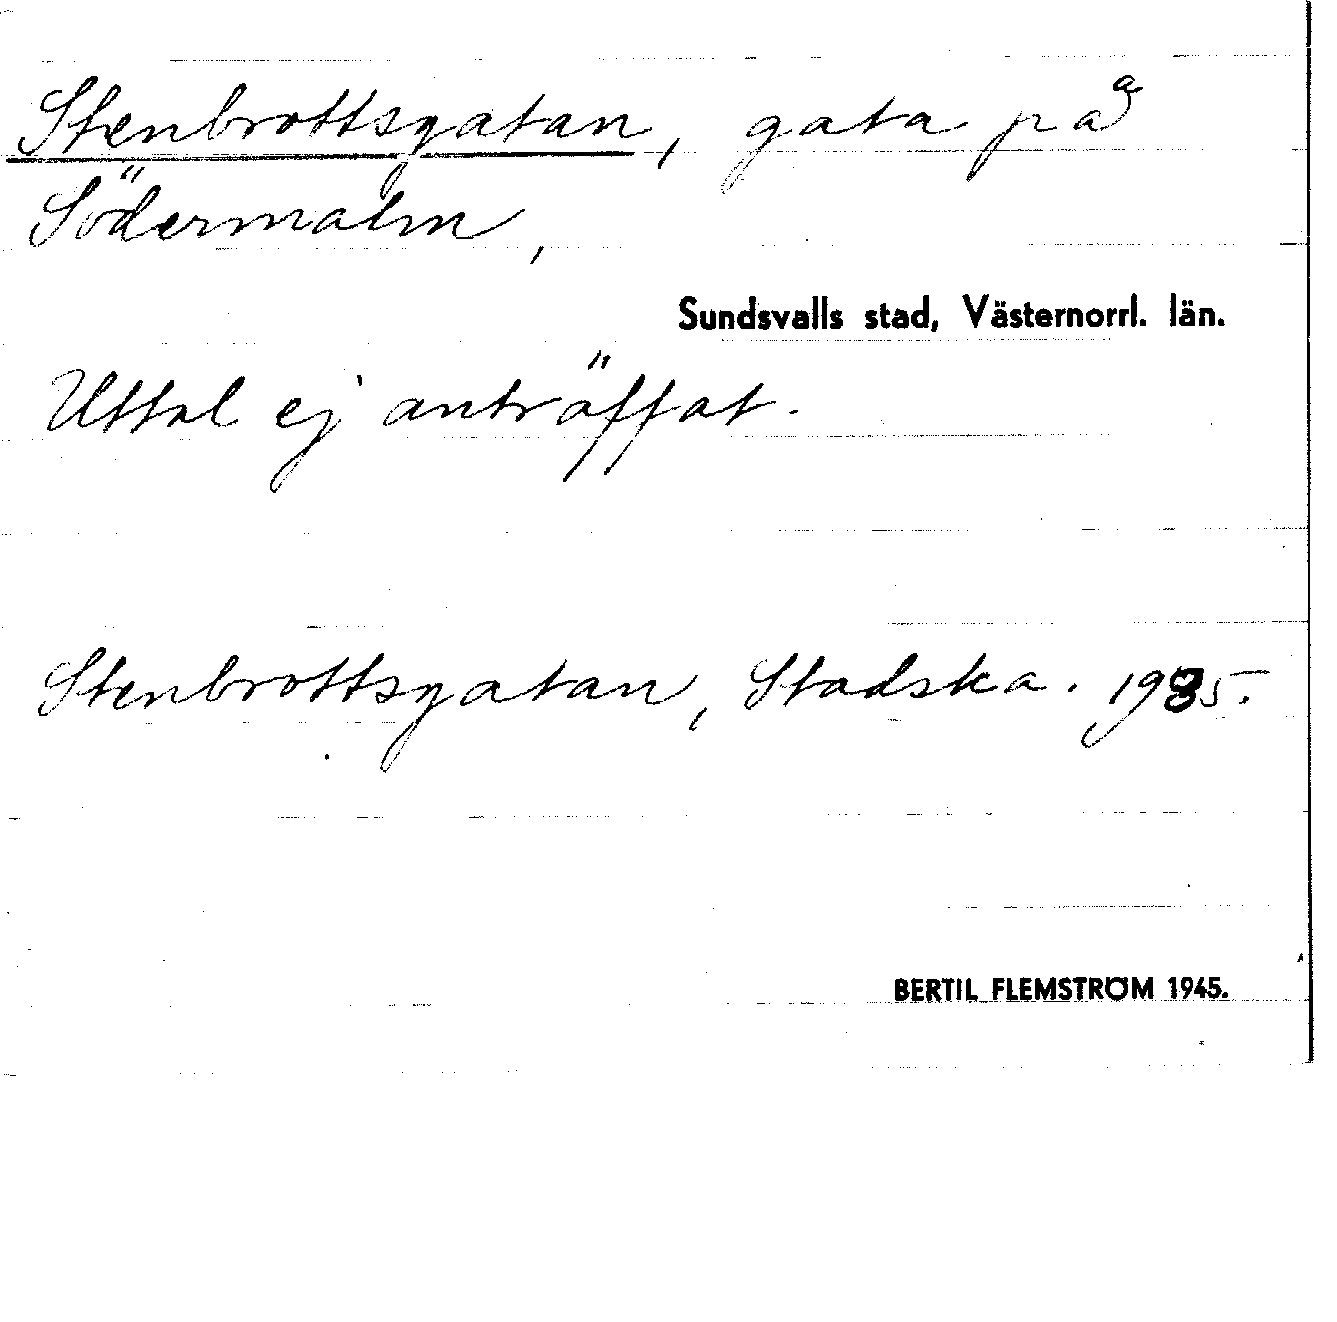 Stenbrottsgatan, gata på
Södermalm,
Sundsvalls stad, Västernorrl. län.
Uttal ej anträffat.
Stenbrottsgatan, Stadska. 1935.
BERTIL FLEMSTRÖM 1945.